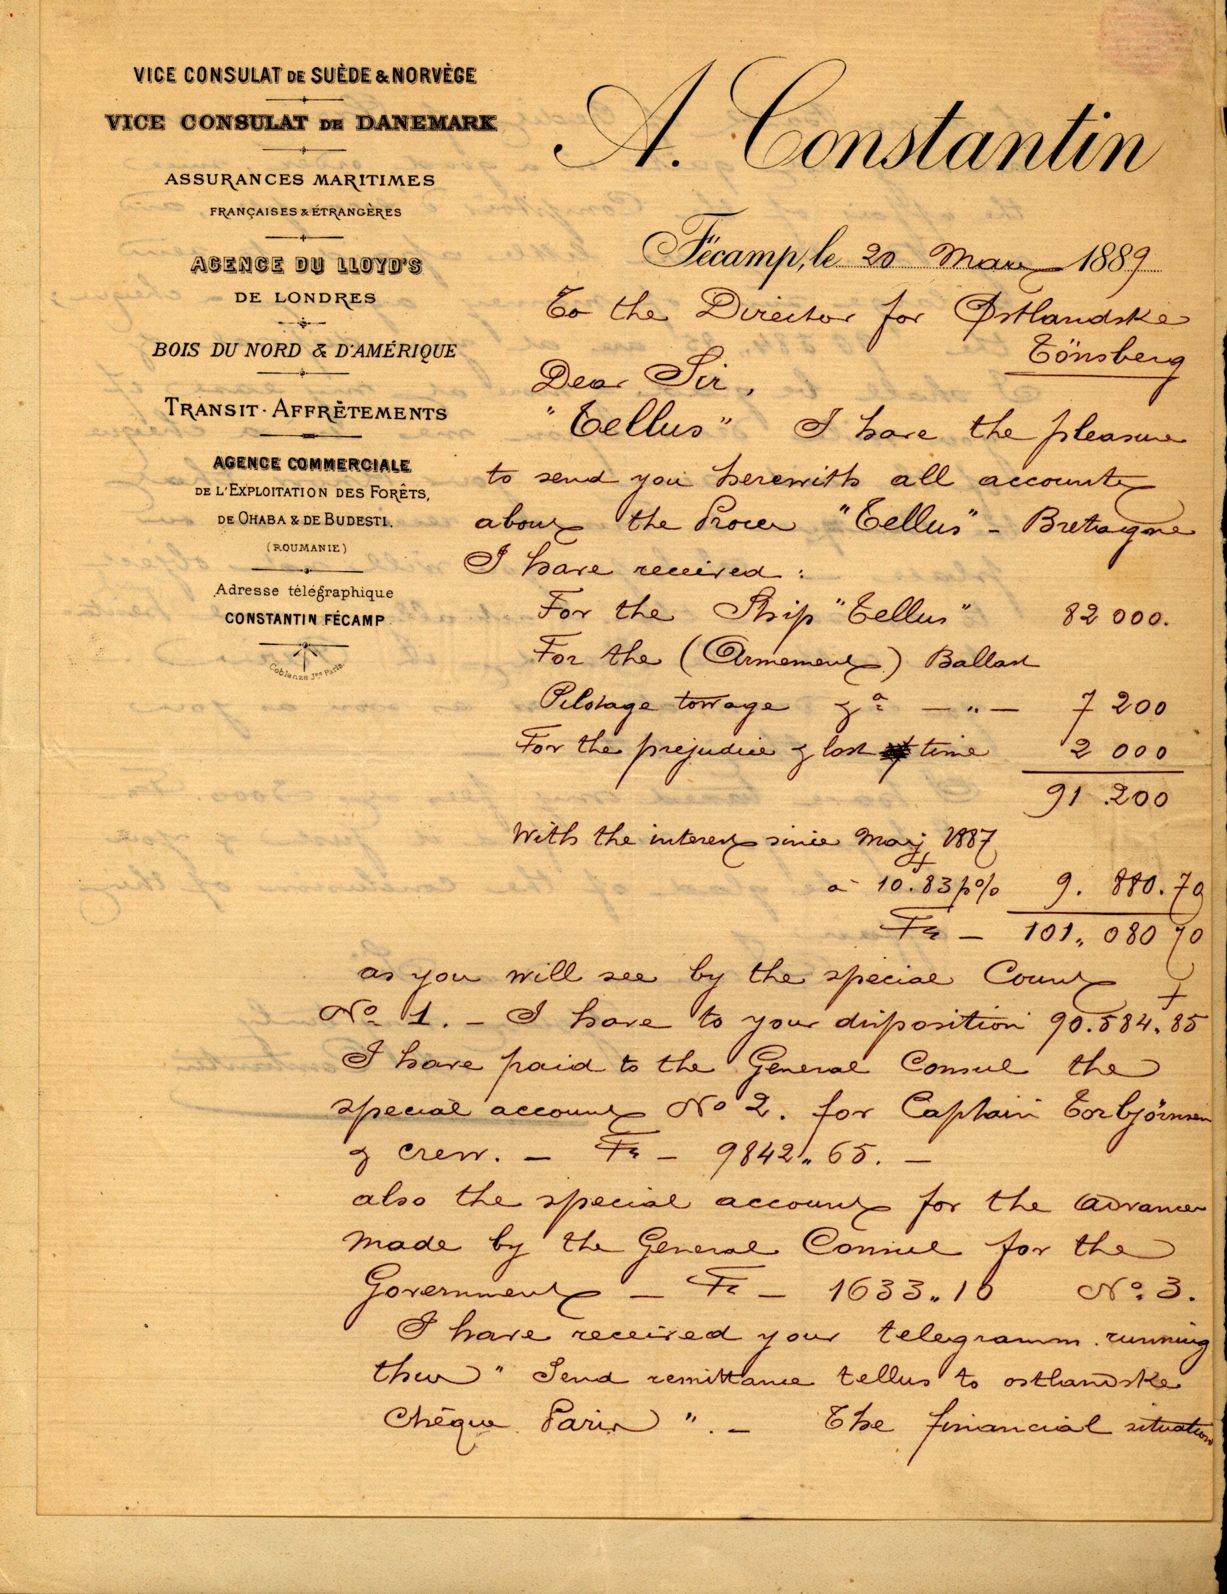 VICE CONSULAT DE SUÈDE & NORVÈGE
VICE CONSULAT DE DANEMARK
ASSURANCES MARITIMES
FRANÇAISES & ÉTRANGÈRES
AGENCE DU LLOYD'S
DE LONDRES
BOIS DU NORD & D'AMÉRIQUE
TRANSIT - AFFRÈTEMENTS
AGENCE COMMERCIALE
DE L'EXPLOITATION DES FORÊTS,
DE OHABA & DE BUDESTI.
(ROUMANIE)
Adresse télégraphique
CONSTANTIN FÉCAMP
Coblanze Jne Paris
A. Constantin
Fécamp, le 20 Mars 1889
To the Director for Østlandske
Tönsberg
Dear Sir,
"Tellus" I have the pleasure
to send you herewith all accounts
about the Proces "Tellus" - Bretagne
I have received:
For the Ship "Tellus" 82 000.
For the (Armement) Ballast
Pilotage towage &a — „ — 7 200
For the prejudice & lost time 2 000
91.200
With the interest since May 1887
a 10.83 p% 9. 880.70
Fr — 101„ 080 70
as you will see by the special Count
No 1. — I have to your disposition 90.584.85
I have paid to the General Consul the
special account No 2. for Captain Torbjörnsen
& crew. — Fr — 9842„65. —
also the special account for the advances
made by the General Consul for the
Government — Fr — 1633„10 No. 3.
I have received your telegramm running
thus "Send remittance tellus to ostlandske
Chéque Paris". — The financial situation